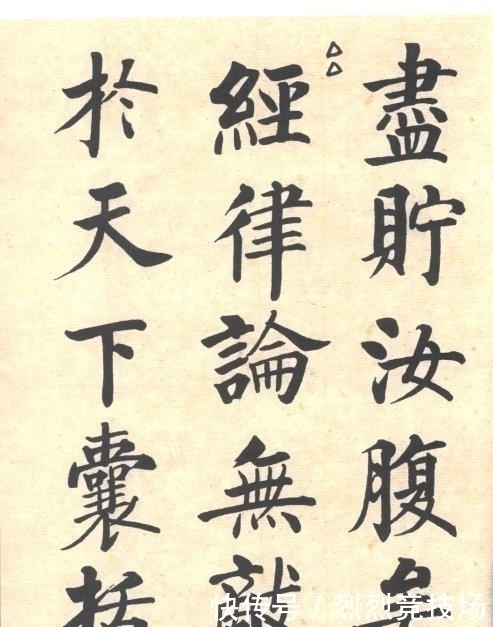 盡貯汝腹
經律論無
於天下囊括
快传号 / 烈烈竞技场